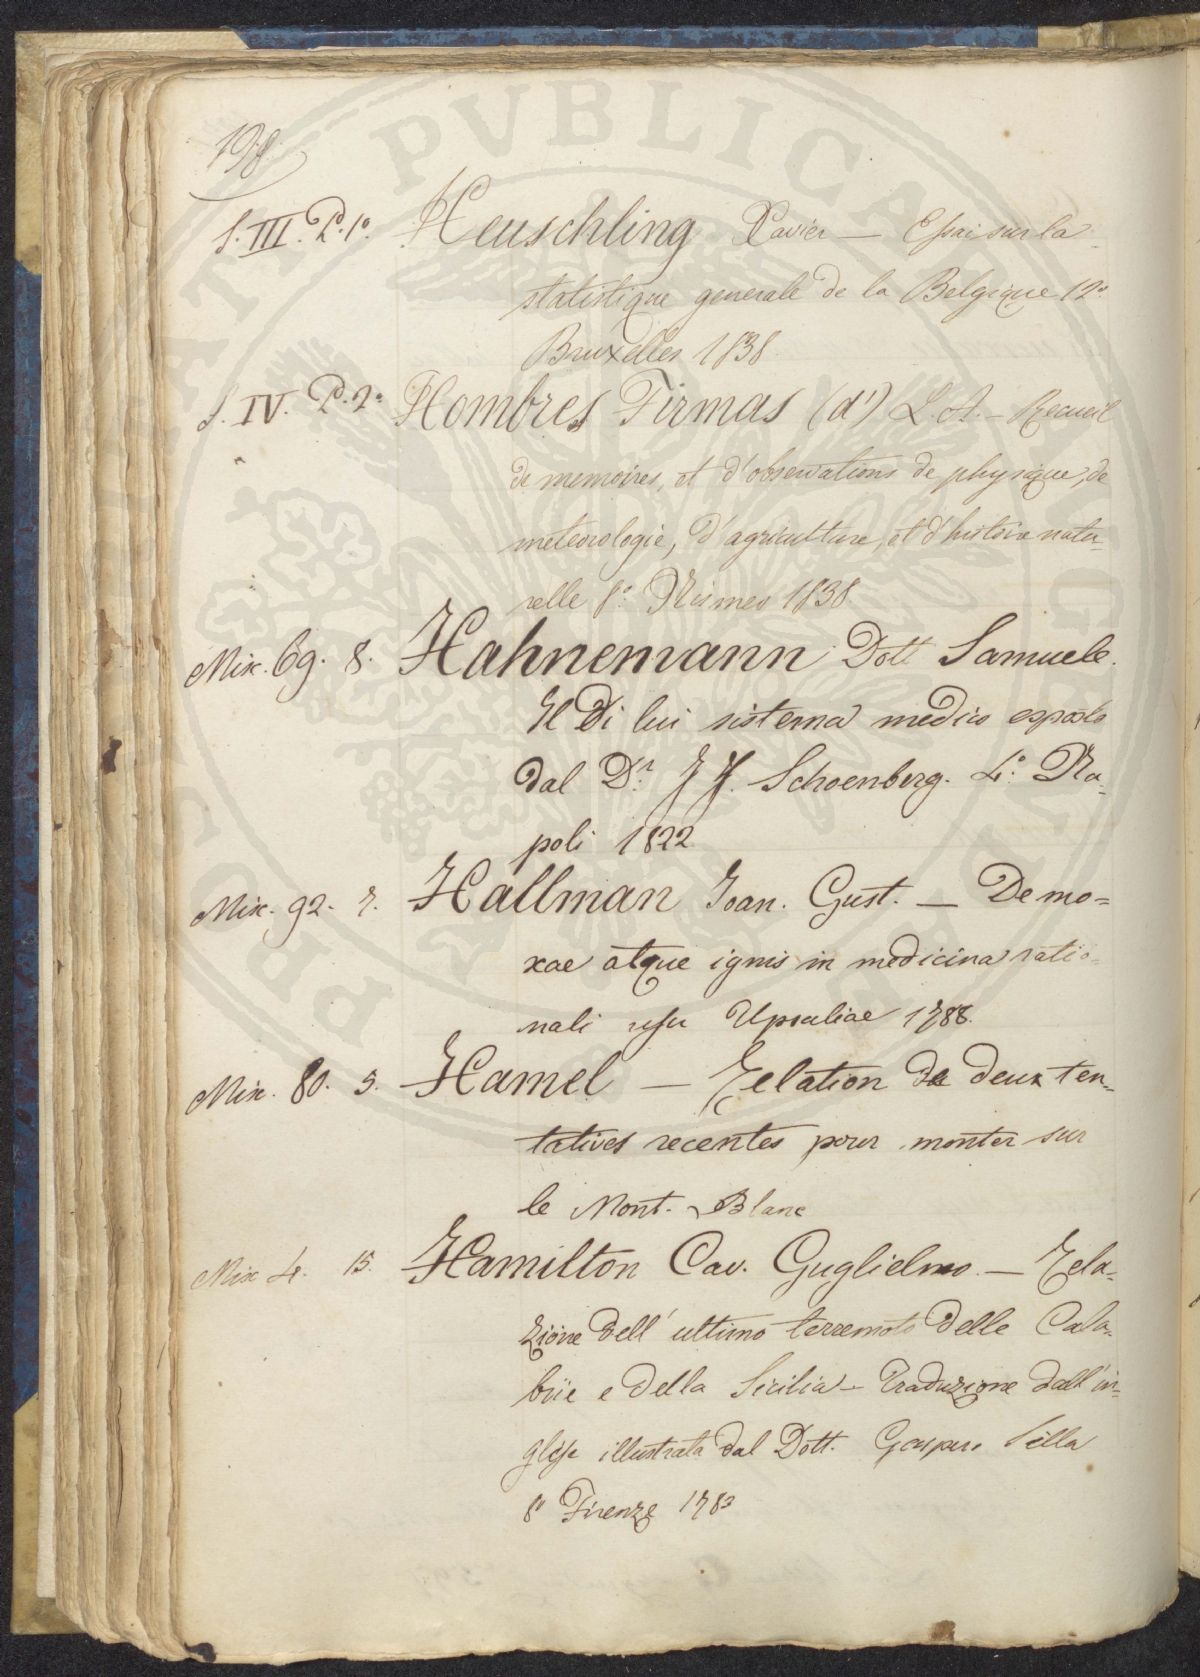 198
S. III. P. 1º. Heuschling Xavier — Essai sur la
statistique generale de la Belgique 12º
Bruxelles 1838
S. IV. P. 2º Hombres Firmas (d') L. A. — Recueil
de memoires, et d'observations de physique, de
meteorologie, d'agriculture, et d'histoire natu-
relle 8º. Nismes 1838
Mix. 69. 8. Hahnemann Dott Samuele.
Il di lui sistema medico esposto
dal Dr. J J. Schoenberg. 4º. Na-
poli 1822
Mix. 92. 7. Hallman Joan. Gust. — De mo=
xae atque ignis in medicina ratio-
nali usu Upsaliae 1788.
Mix. 80. 5. Hamel — Relation de deux ten-
tatives recentes pour monter sur
le Mont-Blanc
Mix 4. 15. Hamilton Cav. Guglielmo. — Rela-
zione dell' ultimo terremoto delle Cala-
brie e della Sicilia — Traduzione dall'in-
glese illustrata dal Dott. Gaspero Sella
8º Firenze 1783